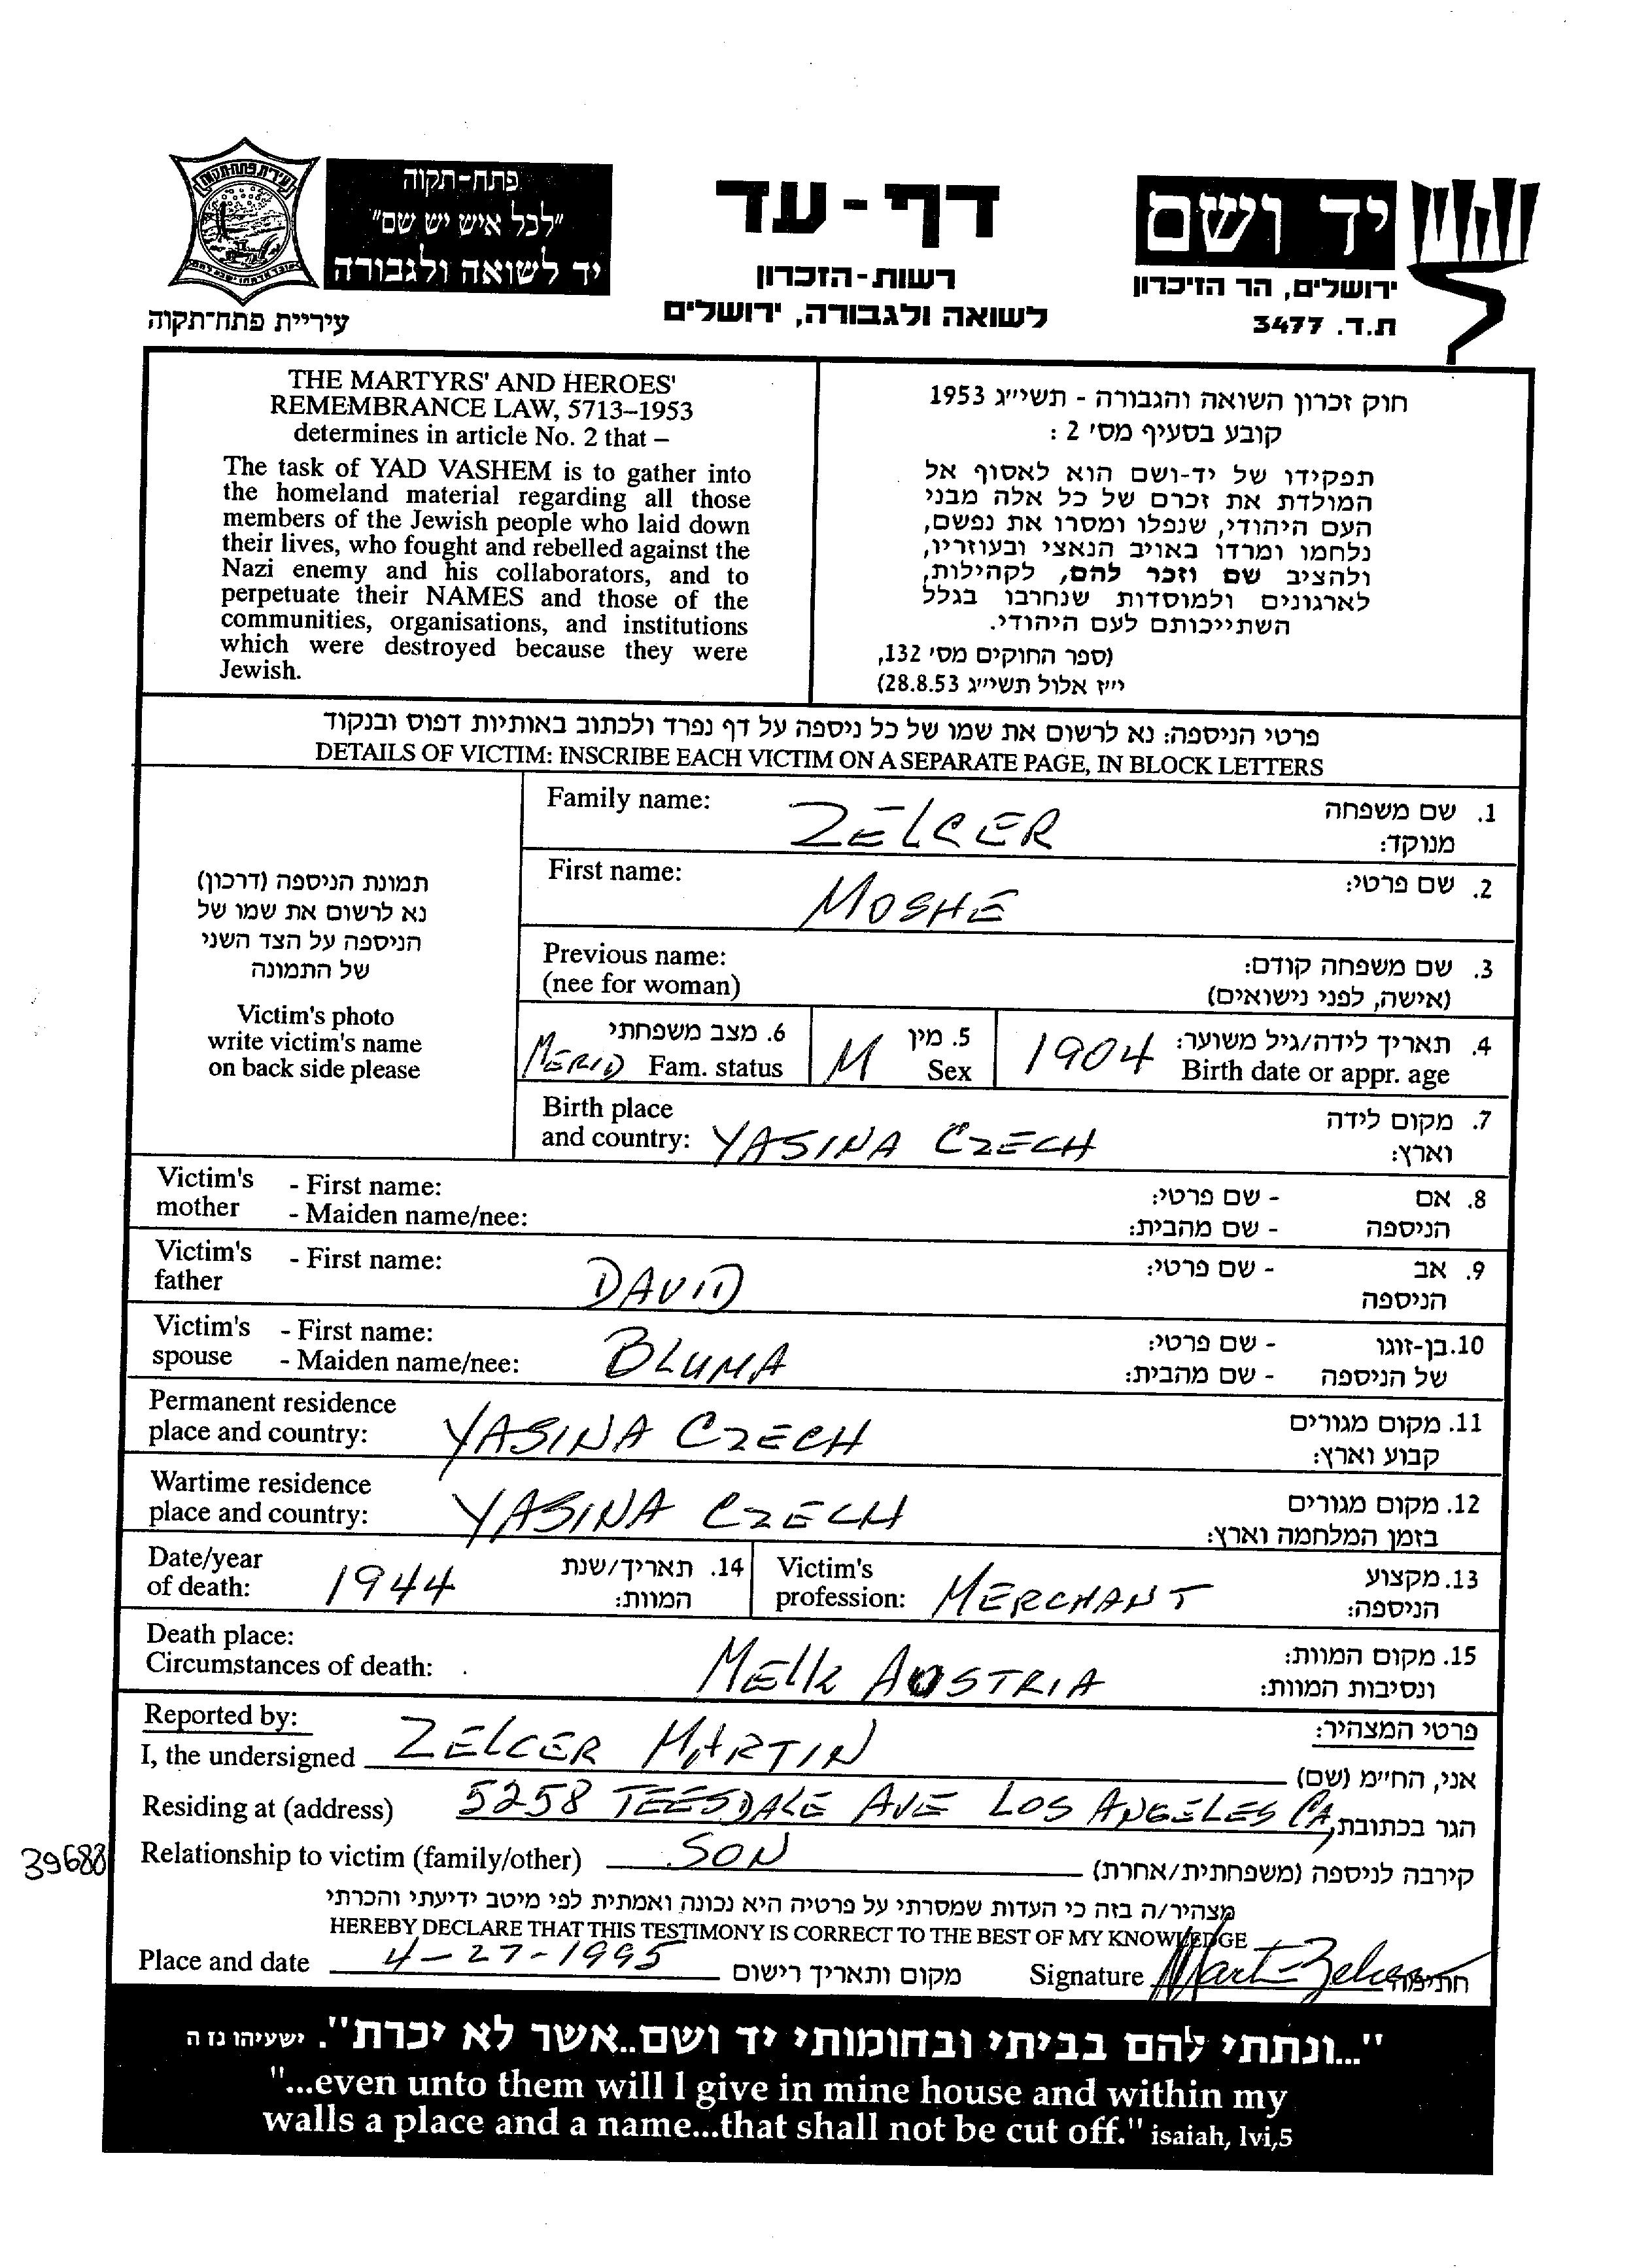 פתח-תקוה
"לכל איש יש שם"
יד לשואה ולגבורה
עיריית פתח-תקוה
דף-עד
רשות-הזכרון
לשואה ולגבורה, ירושלים
יד ושם
ירושלים, הר הזיכרון
ת.ד. 3477
THE MARTYRS' AND HEROES'
REMEMBRANCE LAW, 5713–1953
determines in article No. 2 that –
The task of YAD VASHEM is to gather into
the homeland material regarding all those
members of the Jewish people who laid down
their lives, who fought and rebelled against the
Nazi enemy and his collaborators, and to
perpetuate their NAMES and those of the
communities, organisations, and institutions
which were destroyed because they were
Jewish.
חוק זכרון השואה והגבורה - תשי״ג 1953
קובע בסעיף מס׳ 2 :
תפקידו של יד-ושם הוא לאסוף אל
המולדת את זכרם של כל אלה מבני
העם היהודי, שנפלו ומסרו את נפשם,
נלחמו ומרדו באויב הנאצי ובעוזריו,
ולהציב שם וזכר להם, לקהילות,
לארגונים ולמוסדות שנחרבו בגלל
השתייכותם לעם היהודי.
(ספר החוקים מס׳ 132,
י״ז אלול תשי״ג 28.8.53)
פרטי הניספה: נא לרשום את שמו של כל ניספה על דף נפרד ולכתוב באותיות דפוס ובנקוד
DETAILS OF VICTIM: INSCRIBE EACH VICTIM ON A SEPARATE PAGE, IN BLOCK LETTERS
תמונת הניספה (דרכון)
נא לרשום את שמו של
הניספה על הצד השני
של התמונה
Victim's photo
write victim's name
on back side please
Family name: ZELCER 1. שם משפחה
מנוקד:
First name: MOSHE 2. שם פרטי:
Previous name: 3. שם משפחה קודם:
(nee for woman) (אישה, לפני נישואים)
6. מצב משפחתי 5. מין 4. תאריך לידה/גיל משוער:
MERID Fam. status M Sex 1904 Birth date or appr. age
Birth place 7. מקום לידה
and country: YASINA CZECH וארץ:
Victim's - First name: - שם פרטי: 8. אם
mother - Maiden name/nee: - שם מהבית: הניספה
Victim's - First name: DAVID - שם פרטי: 9. אב
father הניספה
Victim's - First name: BLUMA - שם פרטי: 10. בן-זוגו
spouse - Maiden name/nee: - שם מהבית: של הניספה
Permanent residence 11. מקום מגורים
place and country: YASINA CZECH קבוע וארץ:
Wartime residence 12. מקום מגורים
place and country: YASINA CZECH בזמן המלחמה וארץ:
Date/year 14. תאריך/שנת Victim's 13. מקצוע
of death: 1944 המוות: profession: MERCHANT הניספה:
Death place: 15. מקום המוות:
Circumstances of death: MElk AUSTRIA ונסיבות המוות:
Reported by: פרטי המצהיר:
I, the undersigned ZELCER MARTIN אני, החי״מ (שם)
Residing at (address) 5258 TEESDALE AVE LOS ANGELES CA, הגר בכתובת
39688 Relationship to victim (family/other) SON קירבה לניספה (משפחתית/אחרת)
מצהיר/ה בזה כי העדות שמסרתי על פרטיה היא נכונה ואמתית לפי מיטב ידיעתי והכרתי
HEREBY DECLARE THAT THIS TESTIMONY IS CORRECT TO THE BEST OF MY KNOWLEDGE
Place and date 4-27-1995 מקום ותאריך רישום Signature Mart Zelcer חתימה
"...ונתתי להם בביתי ובחומותי יד ושם..אשר לא יכרת". ישעיהו נז ה
"...even unto them will I give in mine house and within my
walls a place and a name...that shall not be cut off." isaiah, lvi,5